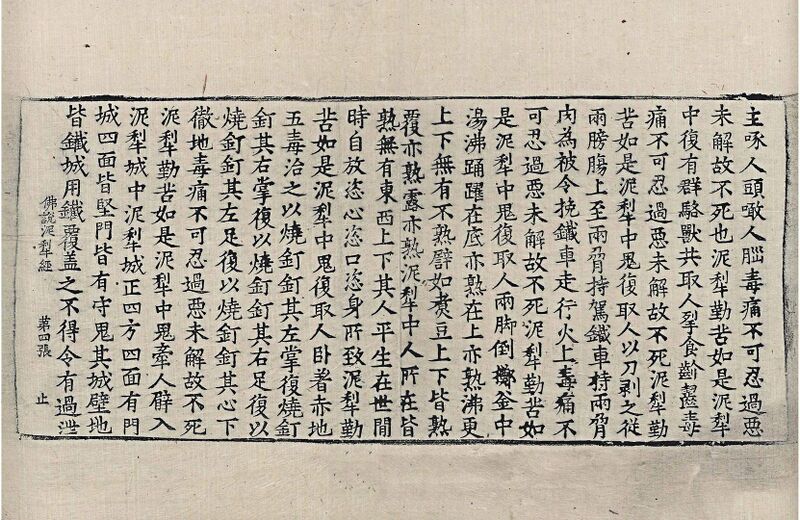 主啄人頭噉人腦毒痛不可忍過惡
未解故不死也泥犁勤苦如是泥犁
中復有群駱獸共取人掣食齝齧毒
痛不可忍過惡未解故不死泥犁勤
苦如是泥犁中鬼復取人以刀剥之從
兩膀膓上至兩脅持駕鐵車持兩脅
肉為被令挽鐵車走行火上毒痛不
可忍過惡未解故不死泥犁勤苦如
是泥犁中鬼復取人兩脚倒擲釜中
湯沸踊躍在底亦熟在上亦熟沸更
上下無有不熟譬如煑豆上下皆熟
覆亦熟露亦熟泥犁中人所在皆
熟無有東西上下其人平生在世閒
時自放恣心恣口恣身所致泥犁勤
苦如是泥犁中鬼復取人卧著赤地
五毒治之以燒釘釘其左掌復燒釘
釘其右掌復以燒釘釘其右足復以
燒釘釘其左足復以燒釘釘其心下
徹地毒痛不可忍過惡未解故不死
泥犁勤苦如是泥犁中鬼牽人辟入
泥犁城中泥犁城正四方四面有門
城四面皆堅門皆有守鬼其城壁地
皆鐵城用鐵覆盖之不得令有過泄
佛說泥犁經 第四張 止